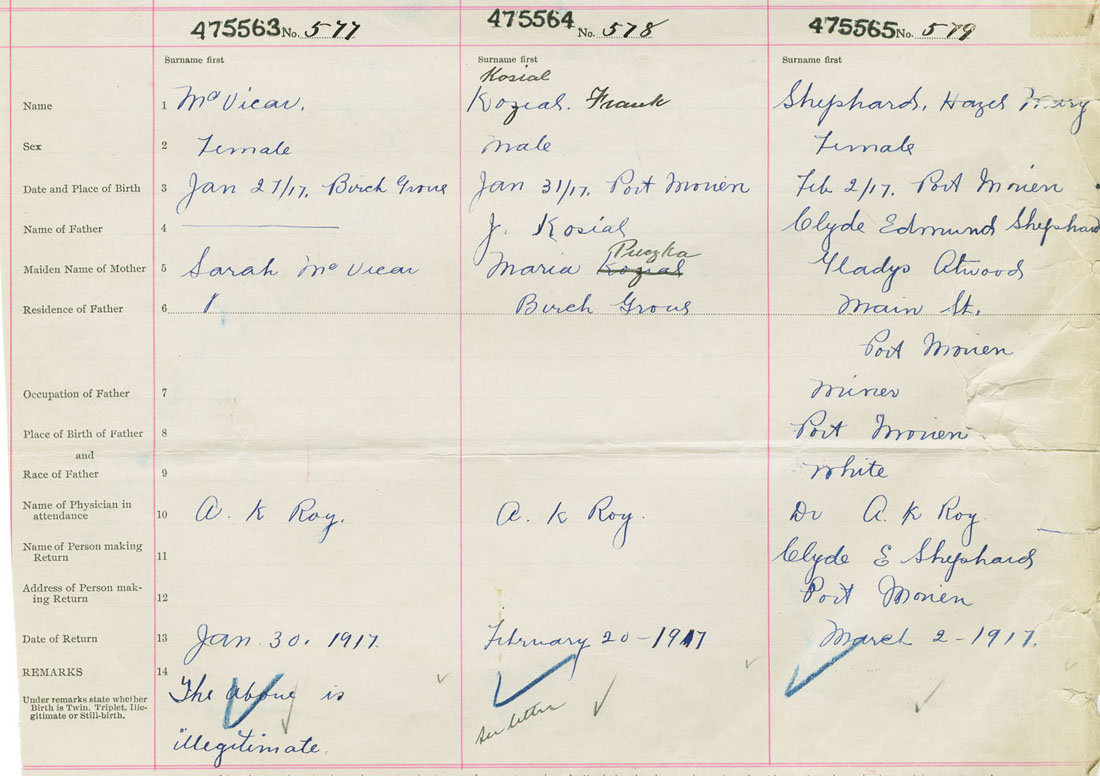 475563 No. 577
475564 No. 578
475565 No. 579
Surname first
Surname first
Surname first
Kosial
Name 1 McVicar. Kozial. Frank Shephard, Hazel Mary
Sex 2 Female male Female
Date and Place of Birth 3 Jan 27/17, Birch Grove Jan 31/17, Port Morien Feb 2/17, Port Morien
Name of Father 4 J. Kosial Clyde Edmund Shephard
Puczka
Maiden Name of Mother 5 Sarah McVicar Maria Kozial Gladys Atwood
Residence of Father 6 Birch Grove Main St.
Port Morien
Occupation of Father 7 Miner
Place of Birth of Father 8 Port Morien
and
Race of Father 9 White
Name of Physician in
attendance 10 A. K Roy. A. K Roy. Dr A. K Roy
Name of Person making
Return 11 Clyde E Shephard
Address of Person mak-
ing Return 12 Port Morien
Date of Return 13 Jan. 30. 1917. February 20-1917 March 2-1917.
REMARKS 14
Under remarks state whether
Birth is Twin, Triplet, Ille-
gitimate or Still-birth.
The above is
illegitimate.
See letter